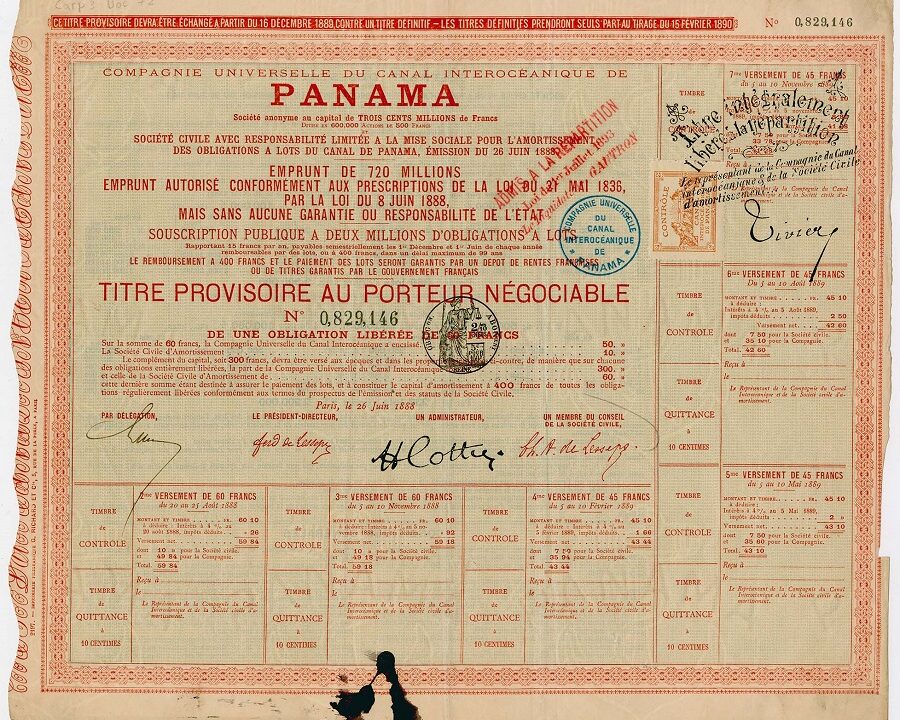 Carp 3 Doc 72
CE TITRE PROVISOIRE DEVRA ÊTRE ÉCHANGÉ A PARTIR DU 16 DÉCEMBRE 1889, CONTRE UN TITRE DÉFINITIF. — LES TITRES DÉFINITIFS PRENDRONT SEULS PART AU TIRAGE DU 15 FÉVRIER 1890
N° 0,829,146
COMPAGNIE UNIVERSELLE DU CANAL INTEROCÉANIQUE DE
PANAMA
Société anonyme au capital de TROIS CENTS MILLIONS de Francs
DIVISÉ EN 600,000 ACTIONS DE 500 FRANCS
ET
SOCIÉTÉ CIVILE AVEC RESPONSABILITÉ LIMITÉE A LA MISE SOCIALE POUR L'AMORTISSEMENT
DES OBLIGATIONS A LOTS DU CANAL DE PANAMA, ÉMISSION DU 26 JUIN 1888
EMPRUNT DE 720 MILLIONS
EMPRUNT AUTORISÉ CONFORMÉMENT AUX PRESCRIPTIONS DE LA LOI DU 21 MAI 1836,
PAR LA LOI DU 8 JUIN 1888,
MAIS SANS AUCUNE GARANTIE OU RESPONSABILITÉ DE L'ÉTAT
SOUSCRIPTION PUBLIQUE A DEUX MILLIONS D'OBLIGATIONS A LOTS
Rapportant 15 francs par an, payables semestriellement les 1er Décembre et 1er Juin de chaque année
remboursables par des lots, ou à 400 francs, dans un délai maximum de 99 ans
LE REMBOURSEMENT A 400 FRANCS ET LE PAIEMENT DES LOTS SERONT GARANTIS PAR UN DÉPOT DE RENTES FRANÇAISES
OU DE TITRES GARANTIS PAR LE GOUVERNEMENT FRANÇAIS
TITRE PROVISOIRE AU PORTEUR NÉGOCIABLE
N° 0,829,146
DE UNE OBLIGATION LIBÉRÉE DE 60 FRANCS
Sur la somme de 60 francs, la Compagnie Universelle du Canal Interocéanique a encaissé 50. »
La Société Civile d'Amortissement 10. »
Le complément du capital, soit 300 francs, devra être versé aux époques et dans les contre, de manière que sur chacune
des obligations entièrement libérées, la part de la Compagnie Universelle du Canal Interocéanique 300. »
et celle de la Société Civile d'Amortissement de 60. »
cette dernière somme étant destinée à assurer le paiement des lots, et à constituer le capital d'amortissement à 400 francs de toutes les obliga-
tions régulièrement libérées conformément aux termes du prospectus de l'émission et des statuts de la Société Civile.
Paris, le 26 Juin 1888
PAR DÉLÉGATION,
LE PRÉSIDENT-DIRECTEUR,
UN ADMINISTRATEUR,
UN MEMBRE DU CONSEIL
DE LA SOCIÉTÉ CIVILE,
Ferd de Lesseps
H Cottu
Ch. A. de Lesseps.
ADMIS A LA RÉPARTITION
Loi du 1er Juillet 1893
Le Liquidateur GAUTRON
COMPAGNIE UNIVERSELLE
DU
CANAL
INTEROCÉANIQUE
DE
PANAMA
Titre intégralement
libéré de la répartition
Le représentant de la Compagnie du Canal
interocéanique & de la Société Civile
d'amortissement
Tivier
CONTRÔLE
TIMBRE
de
CONTROLE
7me VERSEMENT DE 45 FRANCS
du 5 au 10 Novembre 1889
TIMBRE
de
CONTROLE
TIMBRE
de
QUITTANCE
à
10 CENTIMES
6me VERSEMENT DE 45 FRANCS
Du 5 au 10 Août 1889
MONTANT ET TIMBRE FR. 45 10
à déduire :
Intérêts à 4 % au 5 Août 1889,
impôts déduits 2 50
Versement net 42 60
dont 7 50 pour la Société civile.
et 35 10 pour la Compagnie.
Total. 42 60
Reçu à
le
Le Représentant de la Compagnie du Canal
Interocéanique et de la Société civile d'a-
mortissement.
TIMBRE
de
CONTROLE
TIMBRE
de
QUITTANCE
à
10 CENTIMES
5me VERSEMENT DE 45 FRANCS
du 5 au 10 Mai 1889
MONTANT ET TIMBRE FR. 45 10
à déduire :
Intérêts à 4 % au 5 Mai 1889,
impôts déduits 2 »
Versement net 43 10
dont 7 50 pour la Société civile.
et 35 60 pour la Compagnie.
Total. 43 10
Reçu à
le
Le Représentant de la Compagnie du Canal
Interocéanique et de la Société civile d'a-
mortissement.
TIMBRE
de
CONTROLE
TIMBRE
de
QUITTANCE
à
10 CENTIMES
2me VERSEMENT DE 60 FRANCS
du 20 au 25 Août 1888
MONTANT ET TIMBRE FR. 60 10
à déduire : Intérêts à 4 % au
20 août 1888, impôts déduits » 26
Versement net 59 84
dont 10 » pour la Société civile.
et 49 84 pour la Compagnie.
Total. 59 84
Reçu à
le
Le Représentant de la Compagnie du Canal
Interocéanique et de la Société civile d'a-
mortissement.
TIMBRE
de
CONTROLE
TIMBRE
de
QUITTANCE
à
10 CENTIMES
3me VERSEMENT DE 60 FRANCS
du 5 au 10 Novembre 1888
MONTANT ET TIMBRE FR. 60 10
à déduire : Intérêts à 4 % au 5 no-
vembre 1888, impôts déduits » 92
Versement net 59 18
dont 10 » pour la Société civile.
et 49 18 pour la Compagnie.
Total. 59 18
Reçu à
le
Le Représentant de la Compagnie du Canal
Interocéanique et de la Société civile d'a-
mortissement.
TIMBRE
de
CONTROLE
TIMBRE
de
QUITTANCE
à
10 CENTIMES
4me VERSEMENT DE 45 FRANCS
du 5 au 10 Février 1889
MONTANT ET TIMBRE FR. 45 10
à déduire : Intérêts à 4 % au
5 février 1889, impôts déduits 1 66
Versement net 43 44
dont 7 50 pour la Société civile.
et 35 94 pour la Compagnie.
Total. 43 44
Reçu à
le
Le Représentant de la Compagnie du Canal
Interocéanique et de la Société civile d'a-
mortissement.